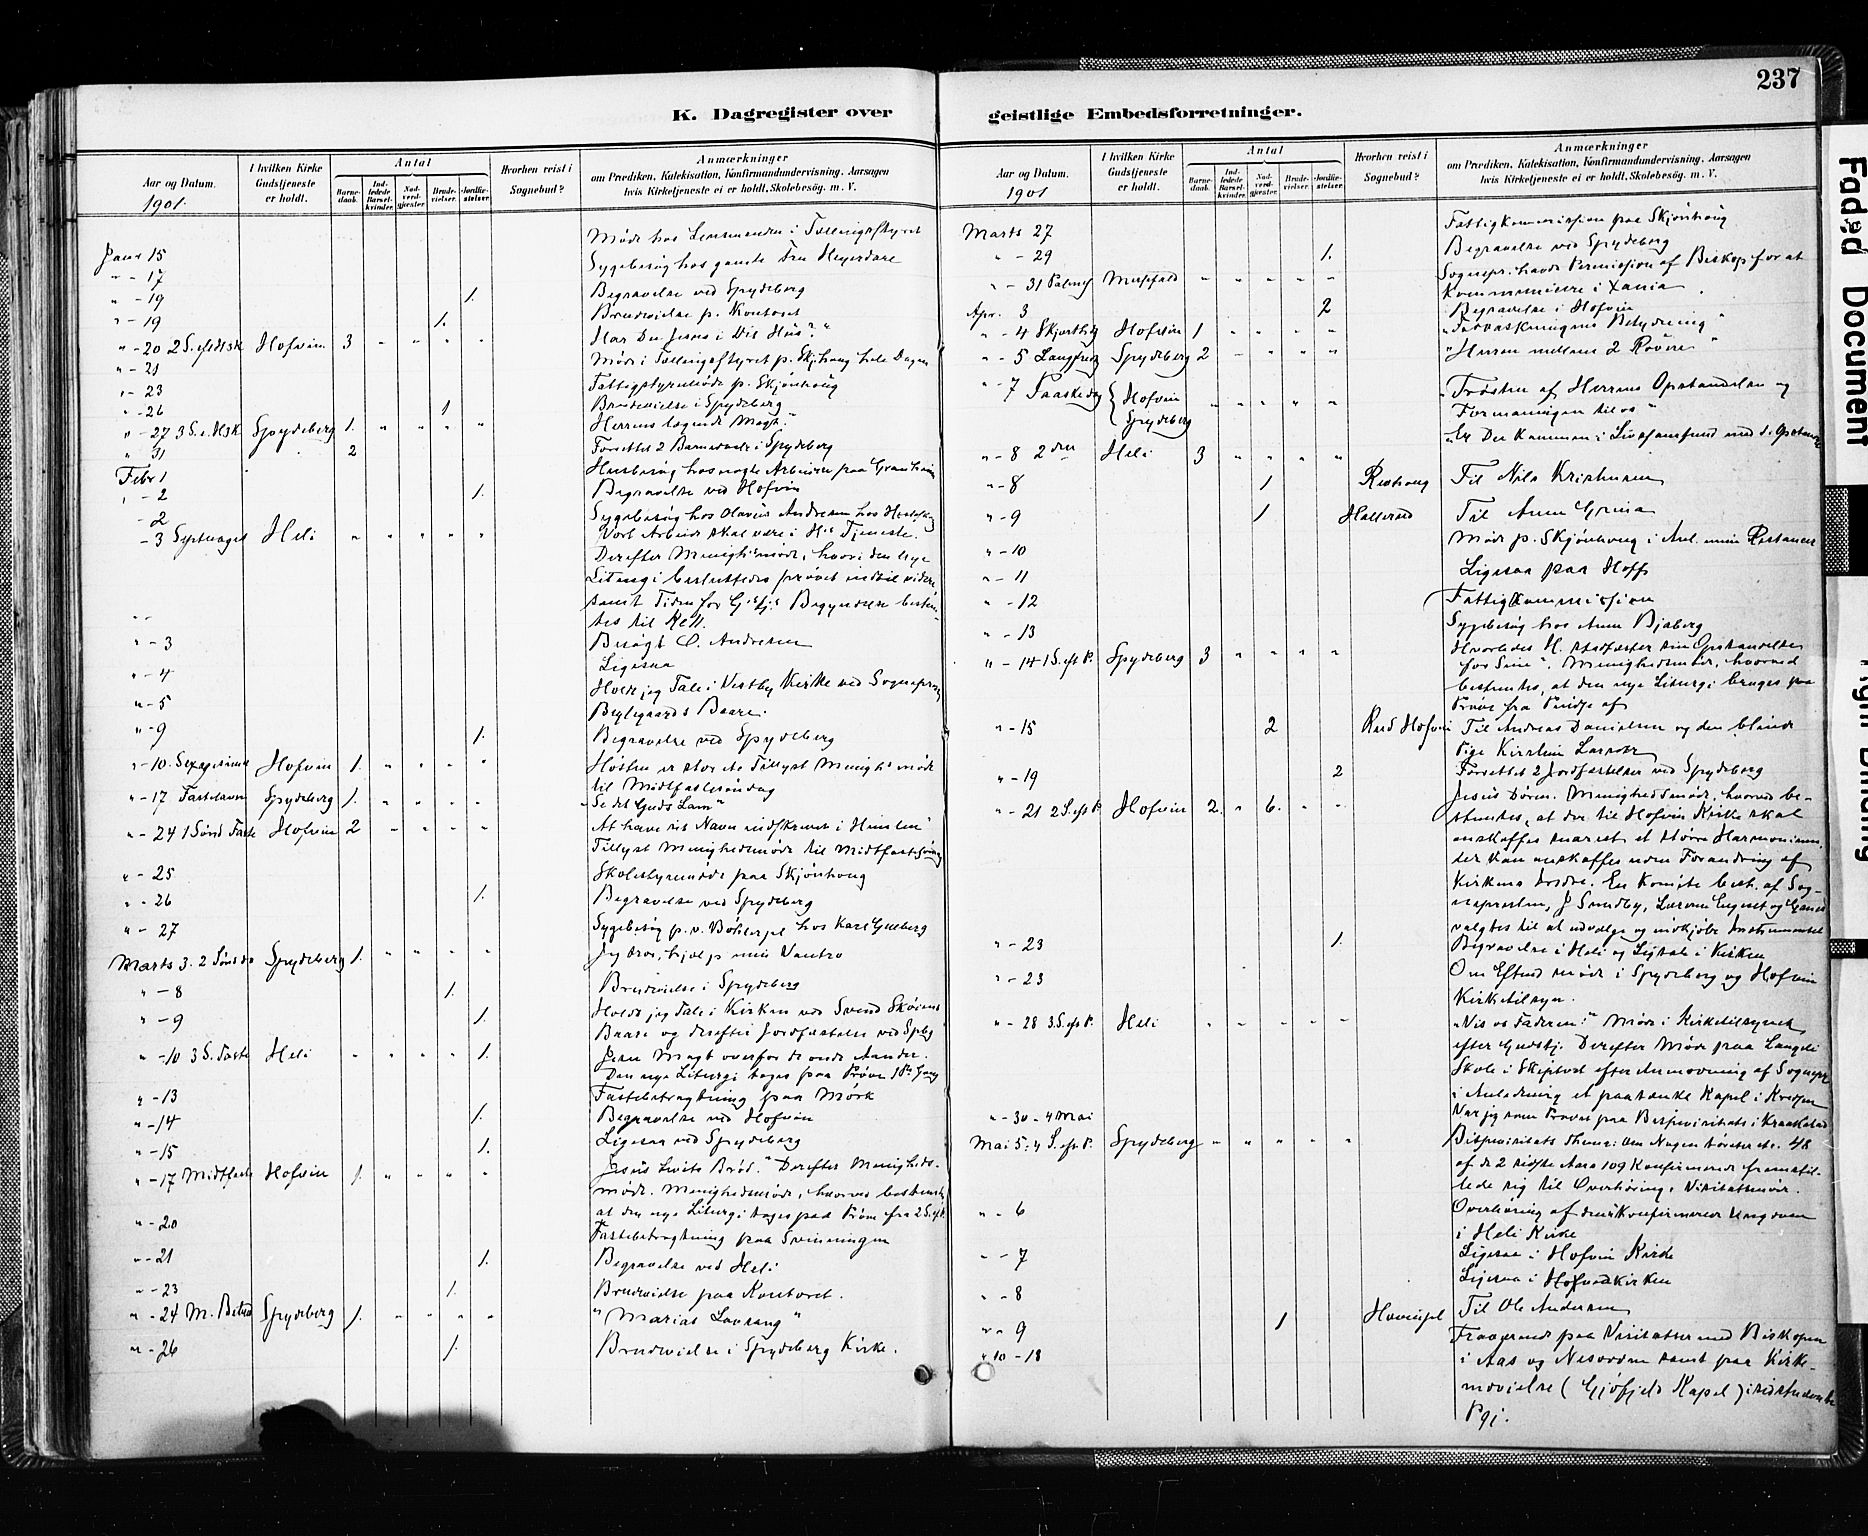 237
K. Dagregister over geistlige Embedsforretninger.
Aar og Datum.
1901.
I hvilken Kirke Gudstjeneste er holdt.
Antal
Barne-daab.
Ind-ledede Barsel-kvinder.
Nad-verd-gjester.
Brude-vielser.
Jordfæ-stelser.
Hvorhen reist i Sognebud?
Anmærkninger
om Prædiken, Katekisation, Konfirmandundervisning, Aarsagen
hvis Kirketjeneste ei er holdt, Skolebesøg. m. V.
Janr 15 Møde hos Lensmanden i Tællingsstyret
" - 17 Sygebesøg hos gamle Fru Heyerdahl
" - 19 1. Begravelse ved Spydeberg
" - 19 1. Brudevielse p. Kontoret
" - 20 2 S. Hofvin 3 " " " " Har Du Jesus i Dit Hus?"
" - 21 Møde i Tællingsstyret p. Skjønhoug hele Dagen
" - 23 Fattigstyremøde p. Skjønhoug
" - 26 1 Brudevielse i Spydeberg
" - 27 3 S. e. Spydeberg 1. " " " " Herrens Magt."
" 31 2 Forrettet 2 Barnedaab i Spydeberg
Febr 1 Husbesøg hos nogle Arbeidere paa
" - 2 1. Begravelse ved Hofvin
- 2 Sygebesøg hos Olavus Andresen hos
- 3 Septuages Heli " " " " " Vort Arbeide skal være i Hs Tjeneste.
Derefter Menighedsmøde, hvori den nye
Liturgi besluttedes prøvet indtil videre
samt Tiden for Gstjs Begyndelse bestem-
tes til Kl 11.
" - 3 Besøgt O. Andresen
" - 4 Ligesaa
" - 5 Holdt jeg Tale i Vestby Kirke ved Sogneprest
Baare.
" - 9 1. Begravelse ved Spydeberg
" - 10. Sexagesima Hofvin 1. " " " " Tillyst Menighs møde
til Midtfastesøndag
" - 17 Fastelavn Spydeberg 1. " " " " "Se det Guds Lam"
" - 24 1 Sønd Faste Hofvin 2 " " " " At have sit Navn indskrevet i Himlen"
Tillyst Menighedsmøde til Midtfastesøndag
" - 25 Skolestyremøde paa Skjønhoug
" - 26 1. Begravelse ved Spydeberg
" - 27 Sygebesøg p. v. hos Karl
Marts 3. 2 Spydeberg 1. " " " " Jeg tror, hjælp min Vantro
" - 8 1. Brudevielse i Spydeberg
" - 9 1. Holdt jeg Tale i Kirken ved Svend
Baare og derefter Jordfæstelse ved
" - 10 3 S. Faste Heli " " " " 1. Jesu Magt overfor de onde Aander.
Den nye Liturgi toges paa Prøve 1ste Gang
" - 13 Fastebetragtning paa Mørk
" - 14 1. Begravelse ved Hofvin
" - 15 1. Ligesaa ved Spydeberg
" - 17 Midtfaste Hofvin 1. " " " " Jesus Livets Brød." Derefter Menigheds-
møde. Menighedsmøde, hvorved bestemtes,
at den nye Liturgi toges paa Prøve fra 2 S. eft P.
" - 20 Fastebetragtning paa Svinningen
" - 21 1. Begravelse ved Heli
" - 23 1. Brudevielse paa Kontoret.
" - 24 M. Spydeberg 1. " " " " "Marias Lovsang"
" - 26 1. Brudevielse i Spydeberg Kirke.
Aar og Datum.
1901
I hvilken Kirke Gudstjeneste er holdt.
Antal
Barne-daab.
Ind-ledede Barsel-kvinder.
Nad-verd-gjester.
Brude-vielser.
Jordfæ-stelser.
Hvorhen reist i Sognebud?
Anmærkninger
om Prædiken, Katekisation, Konfirmandundervisning, Aarsagen
hvis Kirketjeneste ei er holdt, Skolebesøg. m. V.
Marts 27 Fattigkommission paa Skjønhoug
" - 29 1. Begravelse ved Spydeberg
" - 31 Palmes Messefald " " " " " Sognepr. havde Permission af Biskop for at
kommunicere i Xania.
Apr. 3 2 Begravelse i Hofvin
" - 4 Skjærthsd Hofvin 1 " " " " "Fodvaskningens Betydning"
" - 5 Langfred Spydeberg 2 " " " " "Herren mellem 2 Røvere"
" - 7 Paaskedag { Hofvin Spydeberg " " " " " "Trøsten af Herrens Opstandelse og
Formaningen til os"
" - 8 2den Heli 3 " " " " "Er Du kommen i Livssamfund med d. Opstandne
" - 8 1 Til Nils Kristensen
" - 9 1 Til Anne
" - 10 Møde p. Skjønhoug i Anl. mine Restancer
" - 11 Ligesaa paa Hoff
" - 12 Fattigkommission
" - 13 Sygebesøg hos Anne Bjaberg
" - 14 1 S. eft P. Spydeberg 3 " " " " Hvorledes H. stadfæster sin Opstandelse
for Sine". Menighedsmøde, hvorved
bestemtes, at den nye Liturgi bruges paa
Prøve fra Pindse af
" - 15 2 Rud Hofvin Til Andreas Danielsen og den blinde
Pige Kirstine
" - 19 2 Forrettet 2 Jordfæstelser ved Spydeberg
" - 21 2 S. eft P. Hofvin 2. " 6. " " Jesus Døren. Menighedsmøde, hvorved be-
stemtes, at der til Hofvin Kirke skal
anskaffes snarest et større Harmonium,
der kan anskaffes uden Forandring af
Kirkens Indre. En Komite best. af Sog-
nepresten, J Sundby, Lærerne og
valgtes til at udvælge og indkjøbe Instrumentet
" - 23 1. Begravelse i Heli og Ligtale i Kirken
" - 23 Om Eftmd møde i Spydeberg og Hofvin
Kirketilsyn.
" - 28 3. S. eft P. Heli " " " " " "Vis os Faderen!" Møde i Kirketilsynet
efter Gudstj. Derefter Møde paa
Skole i Skiptvedt efter Anmodning af Sognepr
i Anledning et paatænkt Kapel i
" - 30 - 4 Mai Var jeg som Provst paa Bispevisitats i Kraakstad
Mai 5: 4 S. eft P. Spydeberg " " " " " Bispevisitats 48
af de 2 sidste Aars 109 Konfirmerede fremstil-
lede sig til Overhøring. Visitatsmøde.
" - 6 Overhøring af den konfirmerede Ungdom
i Heli Kirke
" - 7 Ligesaa i Hofvin Kirke
" - 8 Ligesaa i Hovedkirken
" " 9 1 Til Ole Andersen
" 10 - 18 Fraværende paa Visitatser med Biskopen
i Aas og Nesodden samt paa Kirke-
indvielse (Gjøfjeld Kapel) i sidstnævnte
Pgj.
Faded Document
Binding